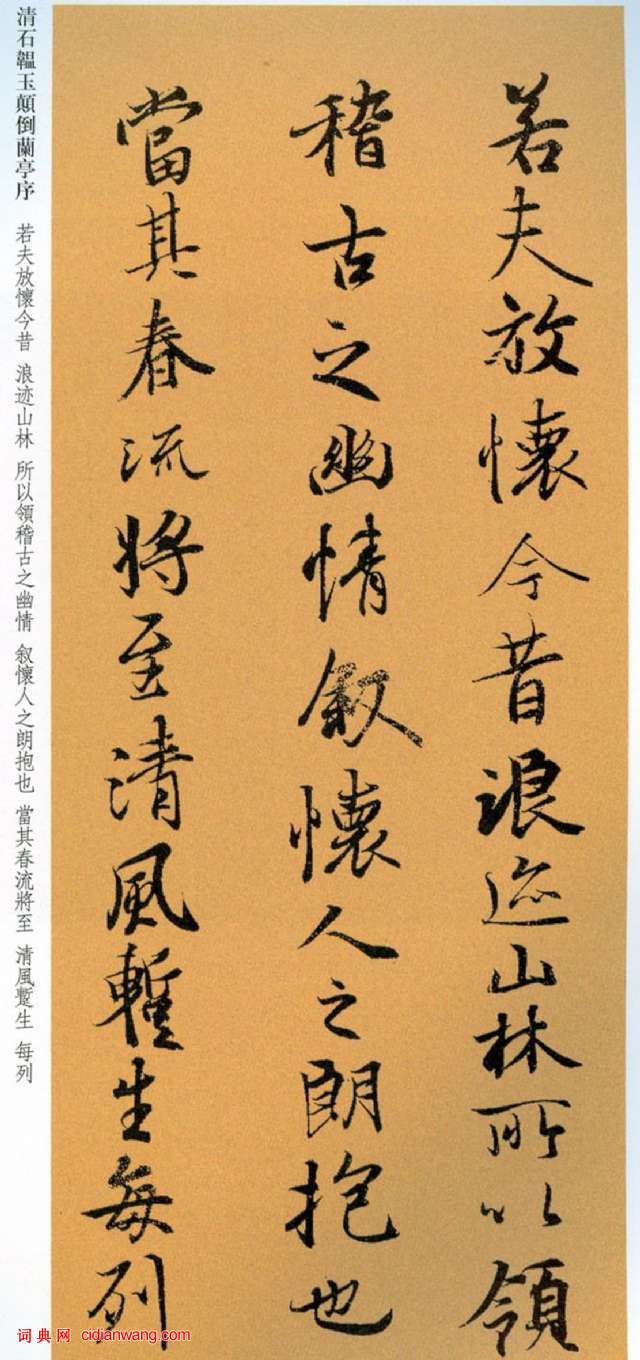 若夫放懷今昔浪迹山林所以領
稽古之幽情叙懷人之朗抱也
當其春流將至清風蹔生每列
清石韞玉顛倒蘭亭序 若夫放懷今昔 浪迹山林 所以領稽古之幽情 叙懷人之朗抱也 當其春流將至 清風蹔生 每列
词典网 cidianwang.com